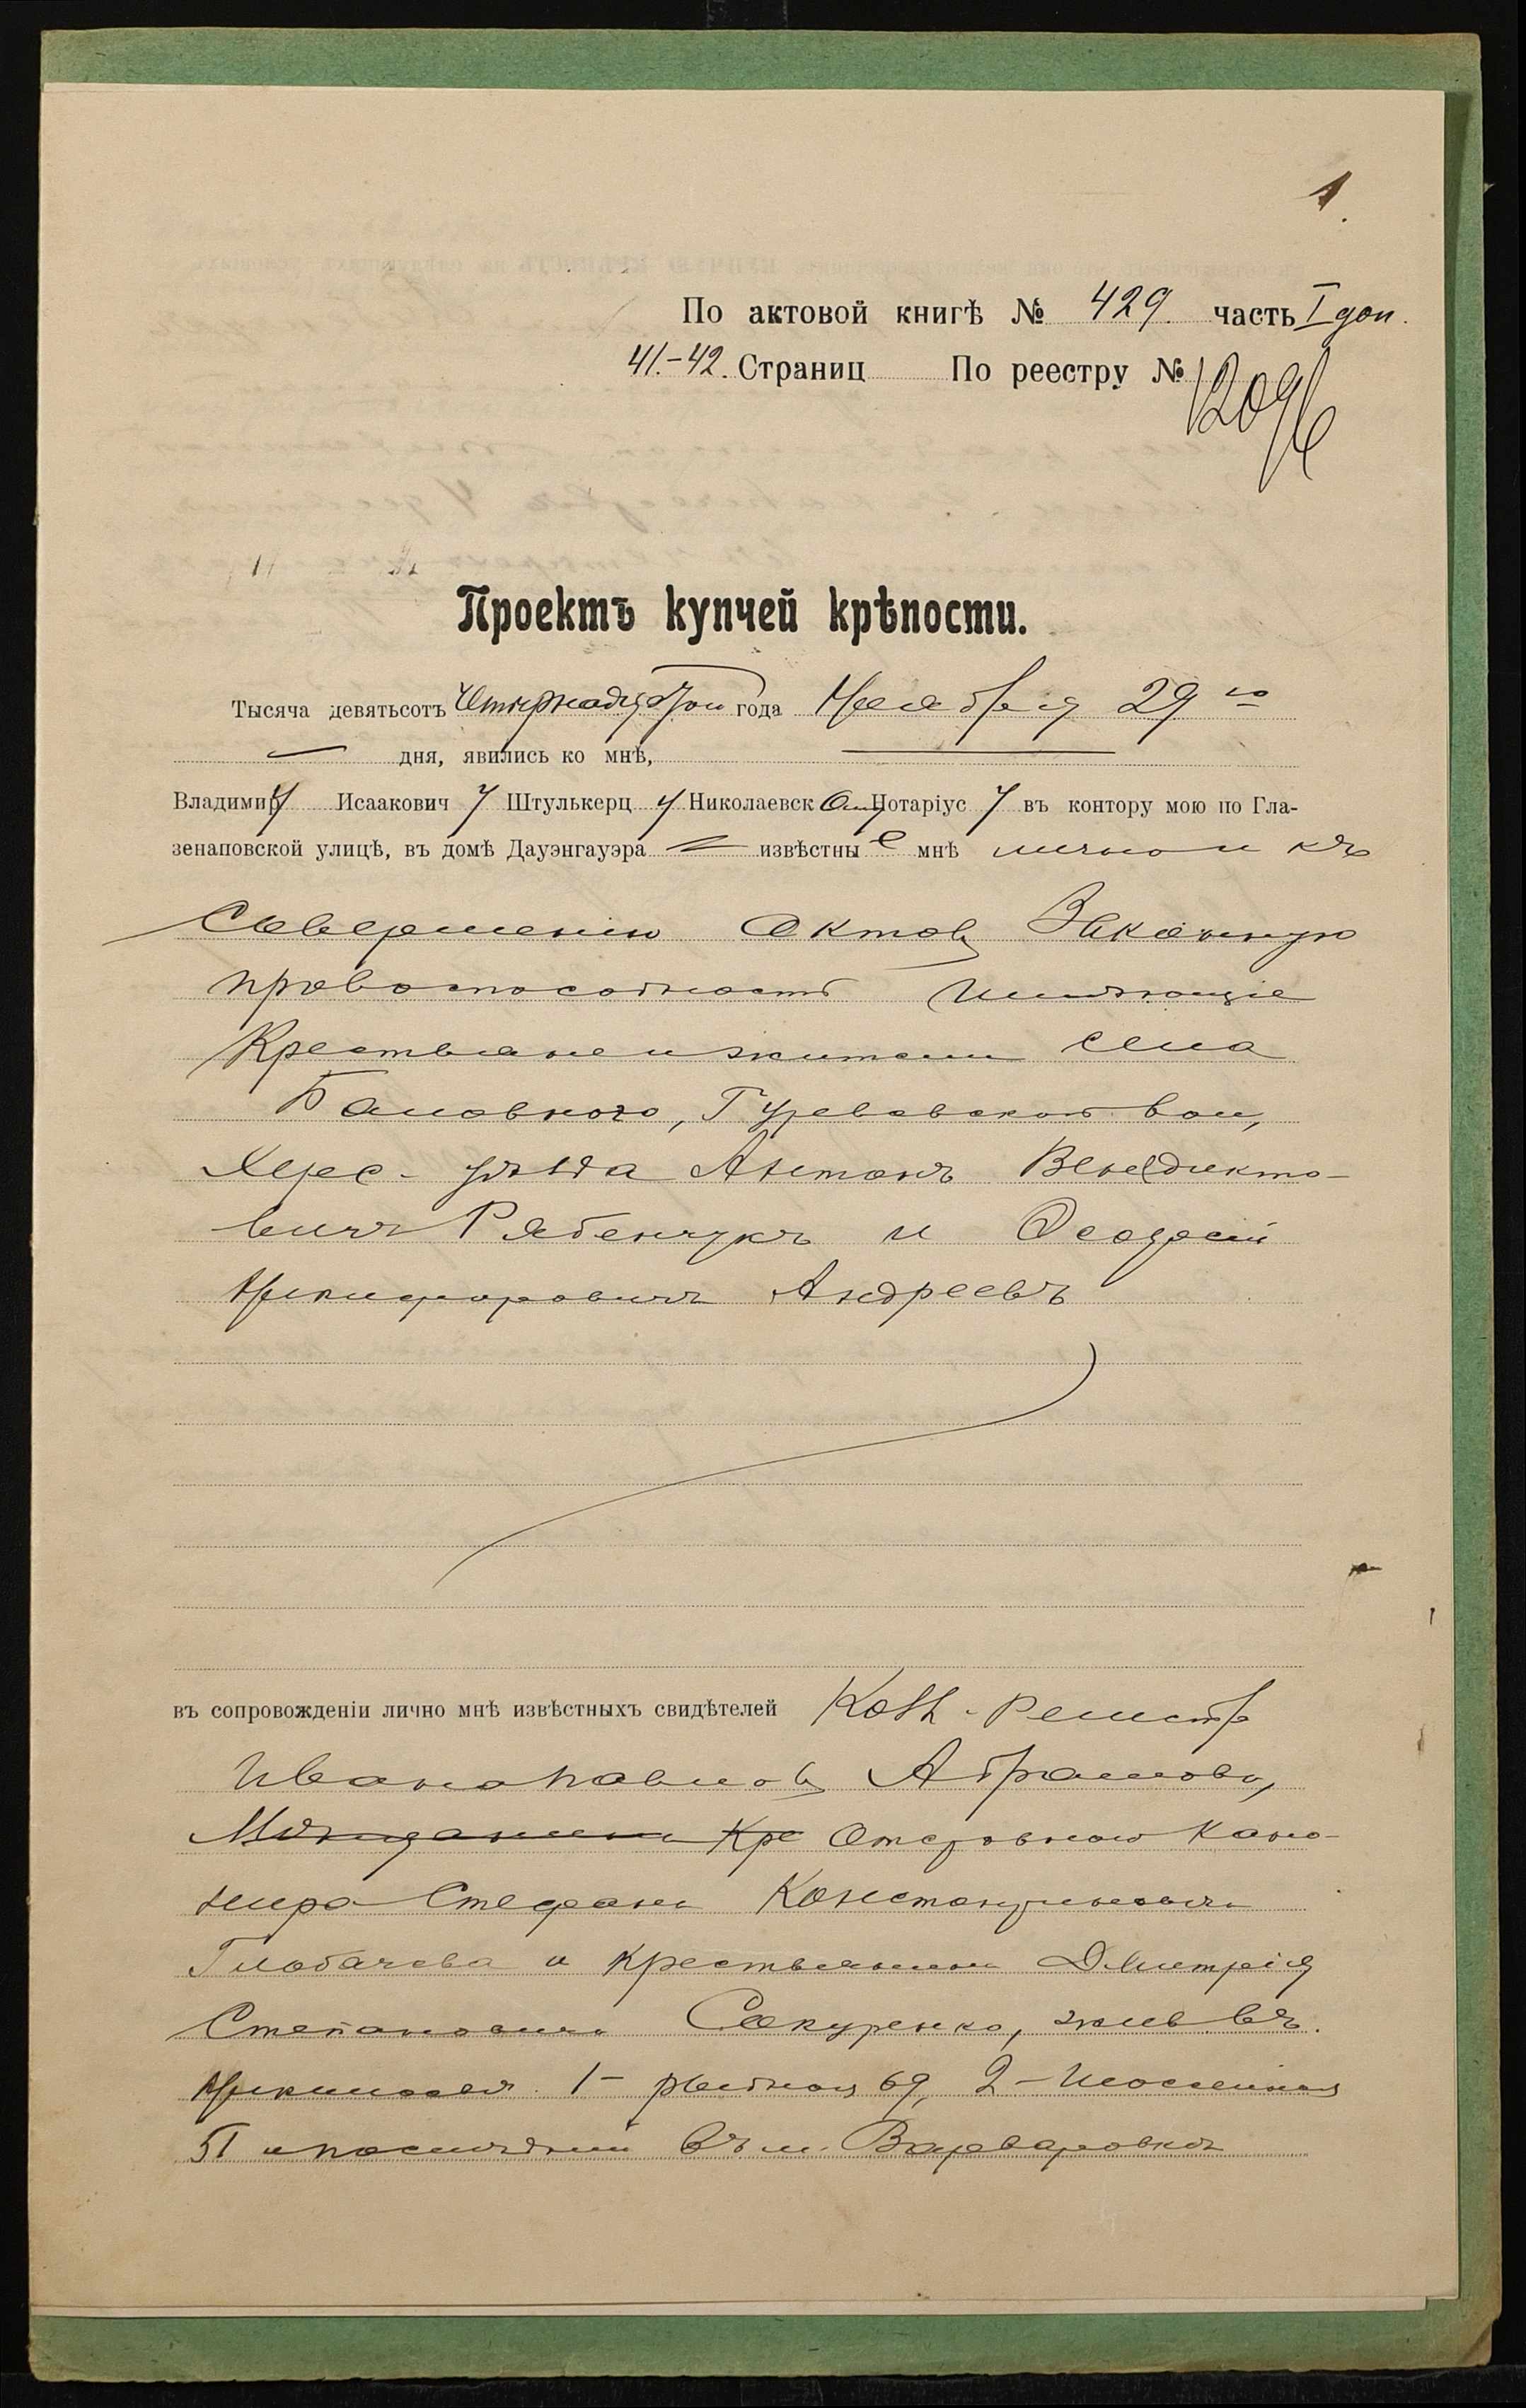 1.
По актовой книгѣ № 429. часть I доп.
41.-42. Страниц По реестру № 12096
Проектъ купчей крѣпости.
Тысяча девятьсотъ Четырнадцатого года Ноября 29 го
дня, явились ко мнѣ,
Владимиру Исаакович у Штулькерц у Николаевск ому Нотаріус у въ контору мою по Гла-
зенаповской улицѣ, въ домѣ Дауэнгауэра извѣстны е мнѣ лично и къ
совершенію актовъ законную
правоспособность имѣющіе
Крестьяне и жители села
Баловного, Гурьевской вол,
Херс. уѣзда Антонъ Венедикто-
вичъ Рябенчукъ и Феодосій
Никифоровичъ Андреевъ
въ сопровожденіи лично мнѣ извѣстныхъ свидѣтелей Колл. Регистр
Ивана Павлов Абрамова,
Мѣщанина Кре Отставного Кано-
нира Стефана Константиновича
Глобачева и крестьянина Дмитрія
Степановича Сакуренко, жив. въ
Николаевѣ 1- Рыбная 69, 2-
51 и послѣдній въ м. Варваровкѣ